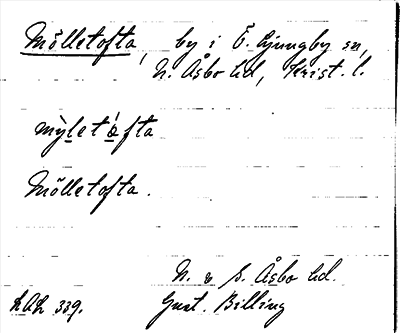 Mölletofta, by i Ö. Ljungby sn,
N. Åsbo hd, Krist. l.
mỳletófta
Mölletofta.
N. o S. Åsbo hd.
LAL 339. Gust. Billing